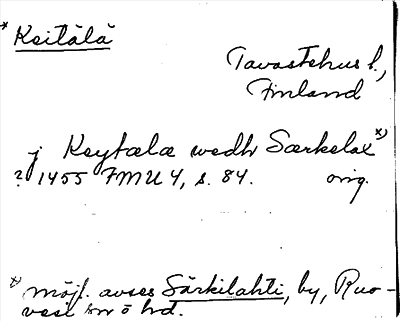 * Keitälä
Tavastehus l.,
Finland
j Keytælæ wedh Særkelax *)
? 1455 FMU 4, s. 84. orig.
*) möjl. avses Särkilahti, by, Ruo-
vesi sn ö hd.